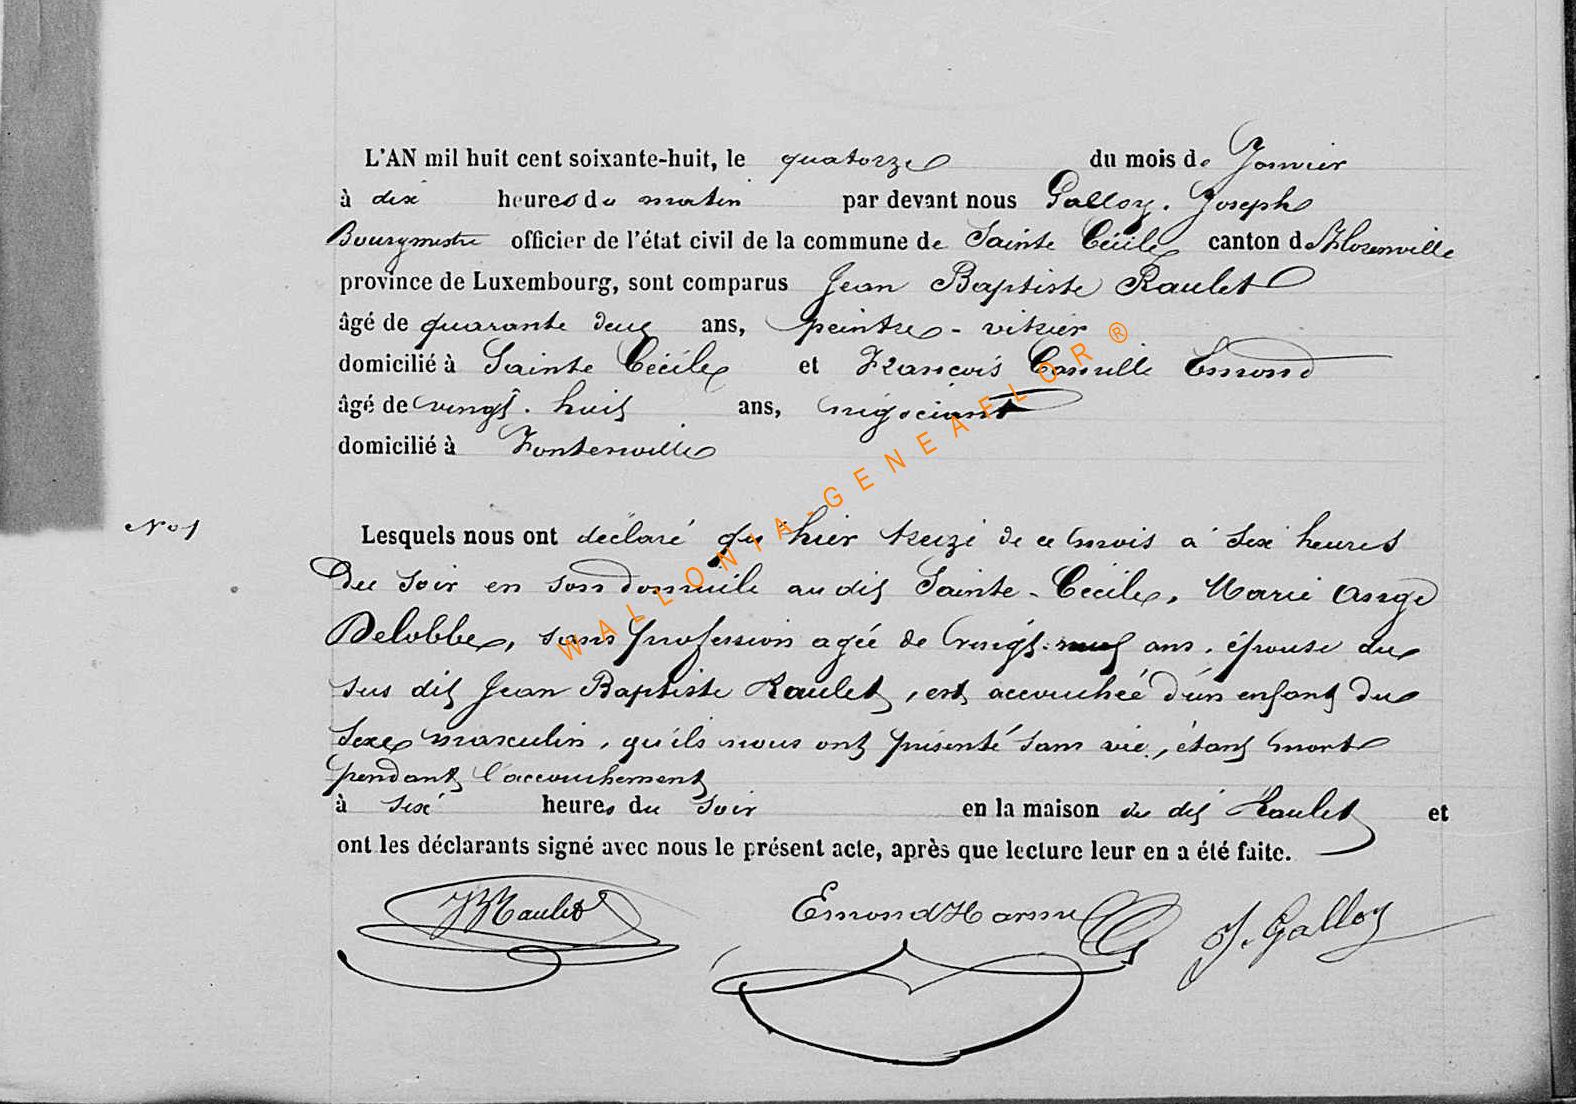 L'AN mil huit cent soixante-huit, le quatorze du mois de Janvier
à dix heures du matin par devant nous Galloy. Joseph
Bourgmestre officier de l'état civil de la commune de Sainte Cécile canton de Florenville
province de Luxembourg, sont comparus Jean Baptiste Raulet
âgé de quarante deux ans, peintre - vitrier
domicilié à Sainte Cécile et François Camille Emond
âgé de vingt. huit ans, négociant
domicilié à Fontenoille
No 1
Lesquels nous ont déclaré qu'hier treize de ce mois à six heures
Du soir en son domicile au dit Sainte - Cécile, Marie Ange
Delobbe, sans profession agée de vingt-neuf ans, épouse du
sus dit Jean Baptiste Raulet, est accouchée d'un enfant du
sexe masculin, qu'ils nous ont présenté sans vie, étant mort
pendant l'accouchement
à six heures du soir en la maison du dit Raulet et
ont les déclarants signé avec nous le présent acte, après que lecture leur en a été faite.
JBRaulet Emond J. Galloy
WALLONIA-GENEAFLOR®